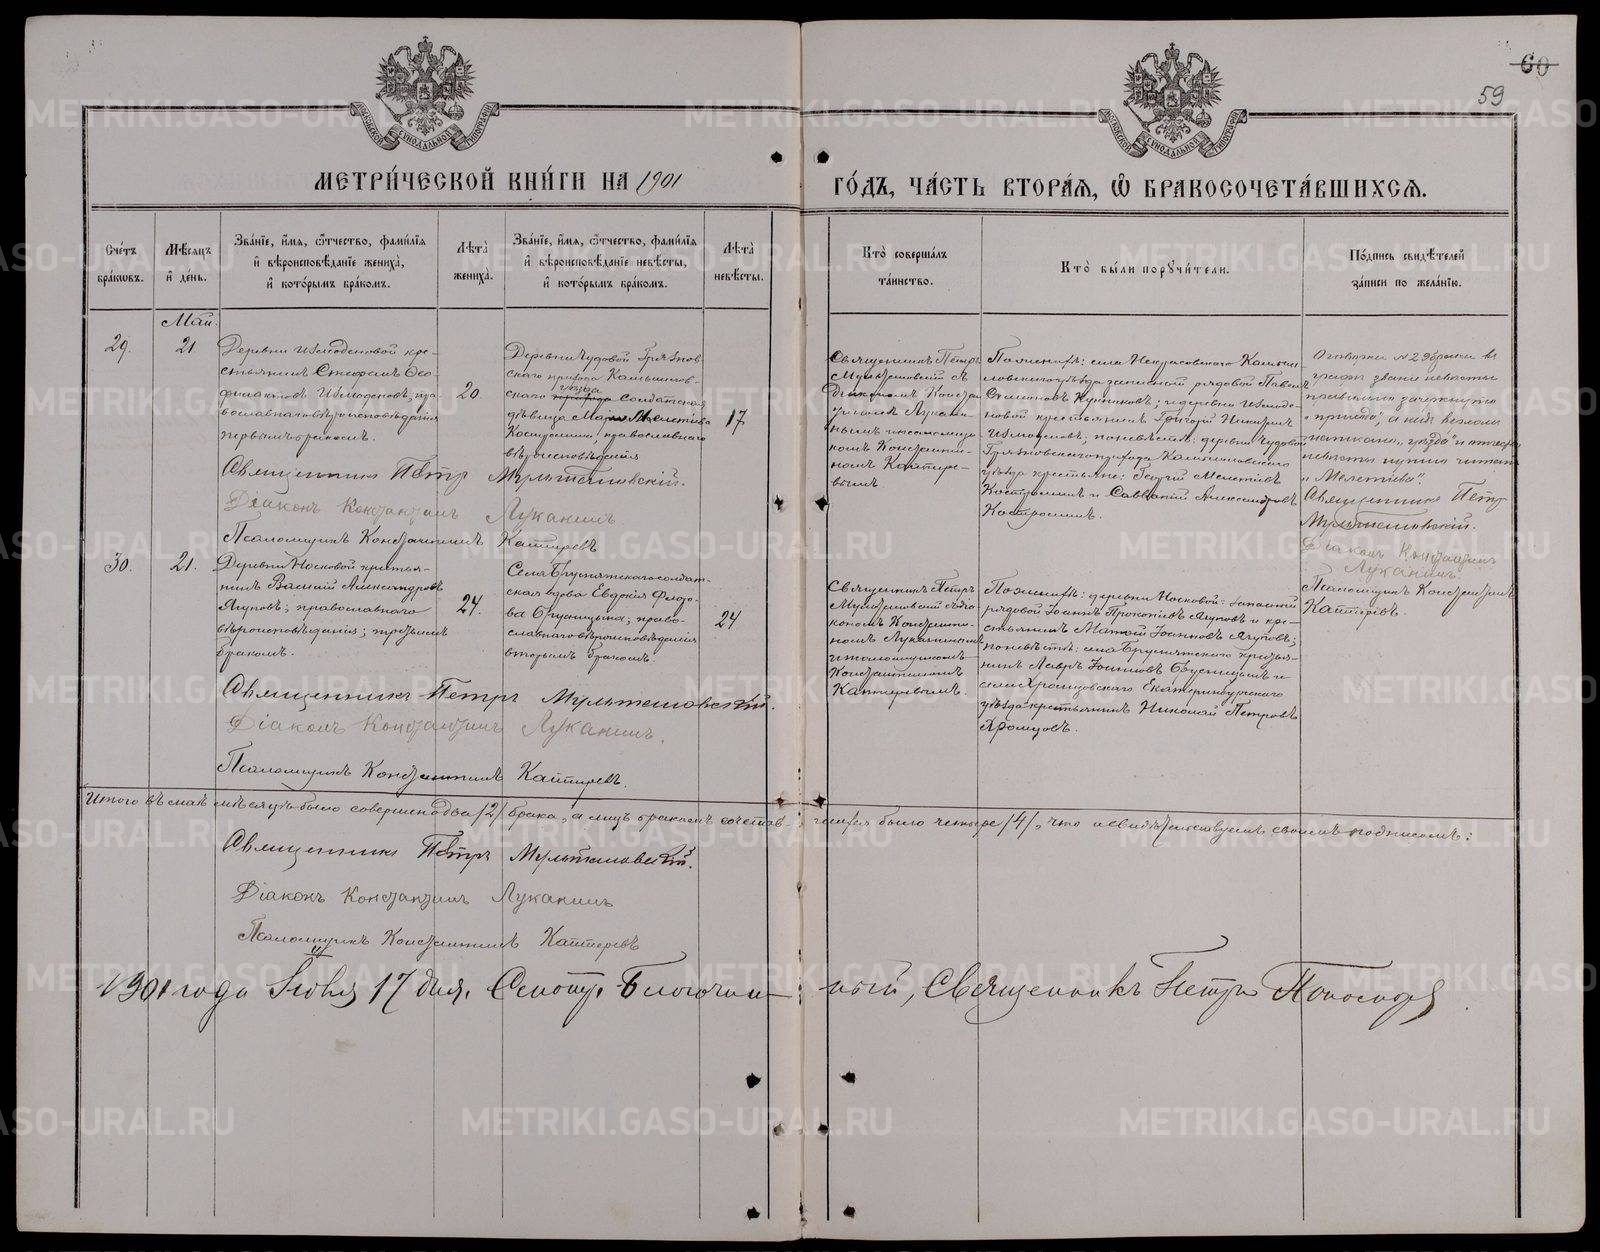 60
59
МЕТРИ́ЧЕСКОЙ КНИ́ГИ НА 1901
ГО́ДЪ, ЧА́СТЬ ВТОРА́Я, Ѡ҆ БРАКОСОЧЕТА́ВШИХСѦ.
Сче́тъ бра́ковъ.
Мѣ́сяцъ и҆ де́нь.
Зва́нїе, и҆́мѧ, ѻ҆́тчество, фами́лїѧ
и҆ вѣроисповѣ́данїе жениха̀,
и҆ кото́рымъ бра́комъ.
Лѣта̀ жениха̀.
Зва́нїе, и҆́мѧ, ѻ҆́тчество, фами́лїѧ
и҆ вѣроисповѣ́данїе невѣ́сты,
и҆ кото́рымъ бра́комъ.
Лѣта̀ невѣ́сты.
Кто̀ соверша́лъ
та́инство.
Кто̀ бы́ли порꙋчи́тели.
По́дпись свидѣ́телей
за́писи по жела́нїю.
Май.
29.
21
Деревни Измоденовой кре-
стьянинъ Стефанъ Ѳео-
филактовъ Измоденовъ, пра-
вославнаго вѣроисповѣданія
первымъ бракомъ.
20
Деревни Чудовой Грязнов-
скаго прихода Камышлов-
скаго уѣзда солдатская
дѣвица Мелетіева
Костромина, православнаго
вѣроисповѣданія
17
Священникъ Петръ
Мультановскій съ
Діакономъ Констан-
тиномъ Лукани-
нымъ и псаломщи-
комъ Константи-
номъ
Поженихѣ: села Некрасовскаго Камыш-
ловскаго уѣзда запасной рядовой Павелъ
Семеновъ и деревни Измоде-
новой крестьянинъ Григорій
Измоденовъ; по невѣстѣ: деревни Чудовой
Грязновскаго прихода Камышловскаго
уѣзда крестьяне: Георгій Мелетіевъ
Костроминъ и Савватій Александровъ
Костроминъ.
№ 29 брака въ
графѣ званіе невѣсты
зачеркнуто
„прихода“, а надъ
написано „уѣзда“ и отчество
невѣсты нужно читать
„Мелетіева“.
Священникъ Петръ
Мультановскій.
Діаконъ Константинъ
Луканинъ.
Псаломщикъ Константинъ
Священникъ Петръ Мультановскій.
Діаконъ Константинъ Луканинъ
Псаломщикъ Константинъ
30.
21.
Деревни Носковой крестья-
нинъ Василій Александровъ
Ягуповъ; православнаго
вѣроисповѣданія; третьимъ
бракомъ.
24.
Села Брусянскаго солдат-
ская вдова Евдокія Ѳедо-
ва право-
славнаго вѣроисповѣданія
вторымъ бракомъ.
24
Священникъ Петръ
Мультановскій съ діа-
кономъ Константи-
номъ Луканинымъ
и псаломщикомъ
Константиномъ
Поженихѣ: деревни Носковой: запасный
рядовой Іоаннъ Прокопіевъ Ягуповъ и кре-
стьянинъ Матѳій Іоанновъ Ягуповъ;
по невѣстѣ: села Брусянскаго крестья-
нинъ Лавръ Іоанновъ и
села Хромцовскаго Екатеринбургскаго
уѣзда крестьянинъ Николай Петровъ
Хромцовъ.
Священникъ Петръ Мультановскій.
Діаконъ Константинъ Луканинъ.
Псаломщикъ Константинъ
Итого въ маѣ мѣсяцѣ было совершено два /2/ брака, а лицъ бракомъ сочетав-шихся было четыре /4/, что и свидѣтельствуемъ своимъ подписомъ:
Священникъ Петръ Мультановскій.
Діаконъ Константинъ Луканинъ
Псаломщикъ Константинъ
1901 года Іюня 17 дня. Благочин-ный, Священникъ Петръ
METRIKI.GASO-URAL.RU